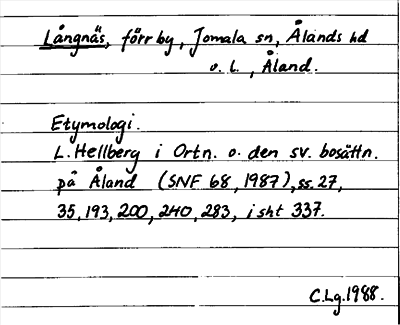 Långnäs, förr by, Jomala sn, Ålands hd
o. L., Åland.
Etymologi.
L. Hellberg i Ortn. o. den sv. bosättn.
på Åland (SNF 68, 1987), ss. 27,
35, 193, 200, 240, 283, i sht 337.
C.Lg. 1988.